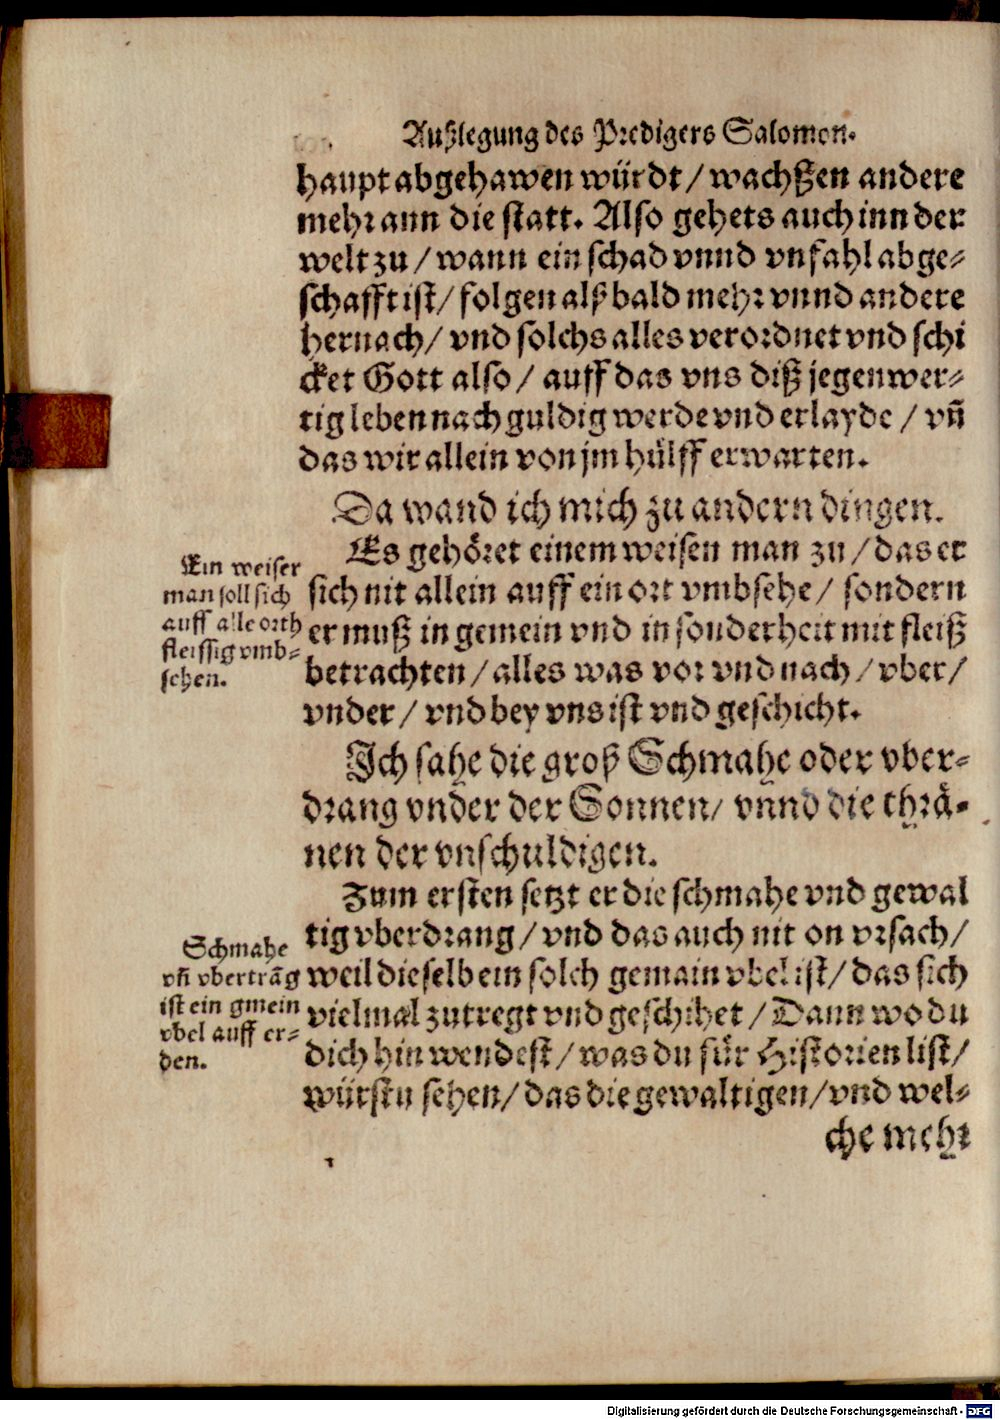 Außlegung des Predigers Salomon.
haupt abgehawen würdt / wachßen andere
mehr ann die statt. Also gehets auch inn der
welt zu / wann ein schad vnnd vnfahl abge-
schafft ist / folgen alß bald mehr vnnd andere
hernach / vnd solchs alles verordnet vnd schi
cket Gott also / auff das vns diß jegenwer-
tig leben nach guldig werde vnd erlayde / vñ
das wir allein von jm hülff erwarten.
Da wand ich mich zu andern dingen.
Es gehöret einem weisen man zu / das er
sich nit allein auff ein ort vmbsehe / sondern
er muß in gemein vnd in sonderheit mit fleiß
betrachten / alles was vor vnd nach / vber /
vnder / vnd bey vns ist vnd geschicht.
Ein weiser
man soll sich
auff alle orth
fleissig vmb-
sehen.
Ich sahe die groß Schmahe oder vber-
drang vnder der Sonnen / vnnd die thrä-
nen der vnschuldigen.
Zum ersten setzt er die schmahe vnd gewal
tig vberdrang / vnd das auch nit on vrsach /
weil dieselb ein solch gemain vbel ist / das sich
vielmal zutregt vnd geschihet / Dann wo du
dich hin wendest / was du für Historien list /
würstu sehen / das die gewaltigen / vnd wel-
Schmahe
vñ vbertrãg
ist ein gmein
vbel auff er-
den.
che mehr
Digitalisierung gefördert durch die Deutsche Forschungsgemeinschaft - DFG